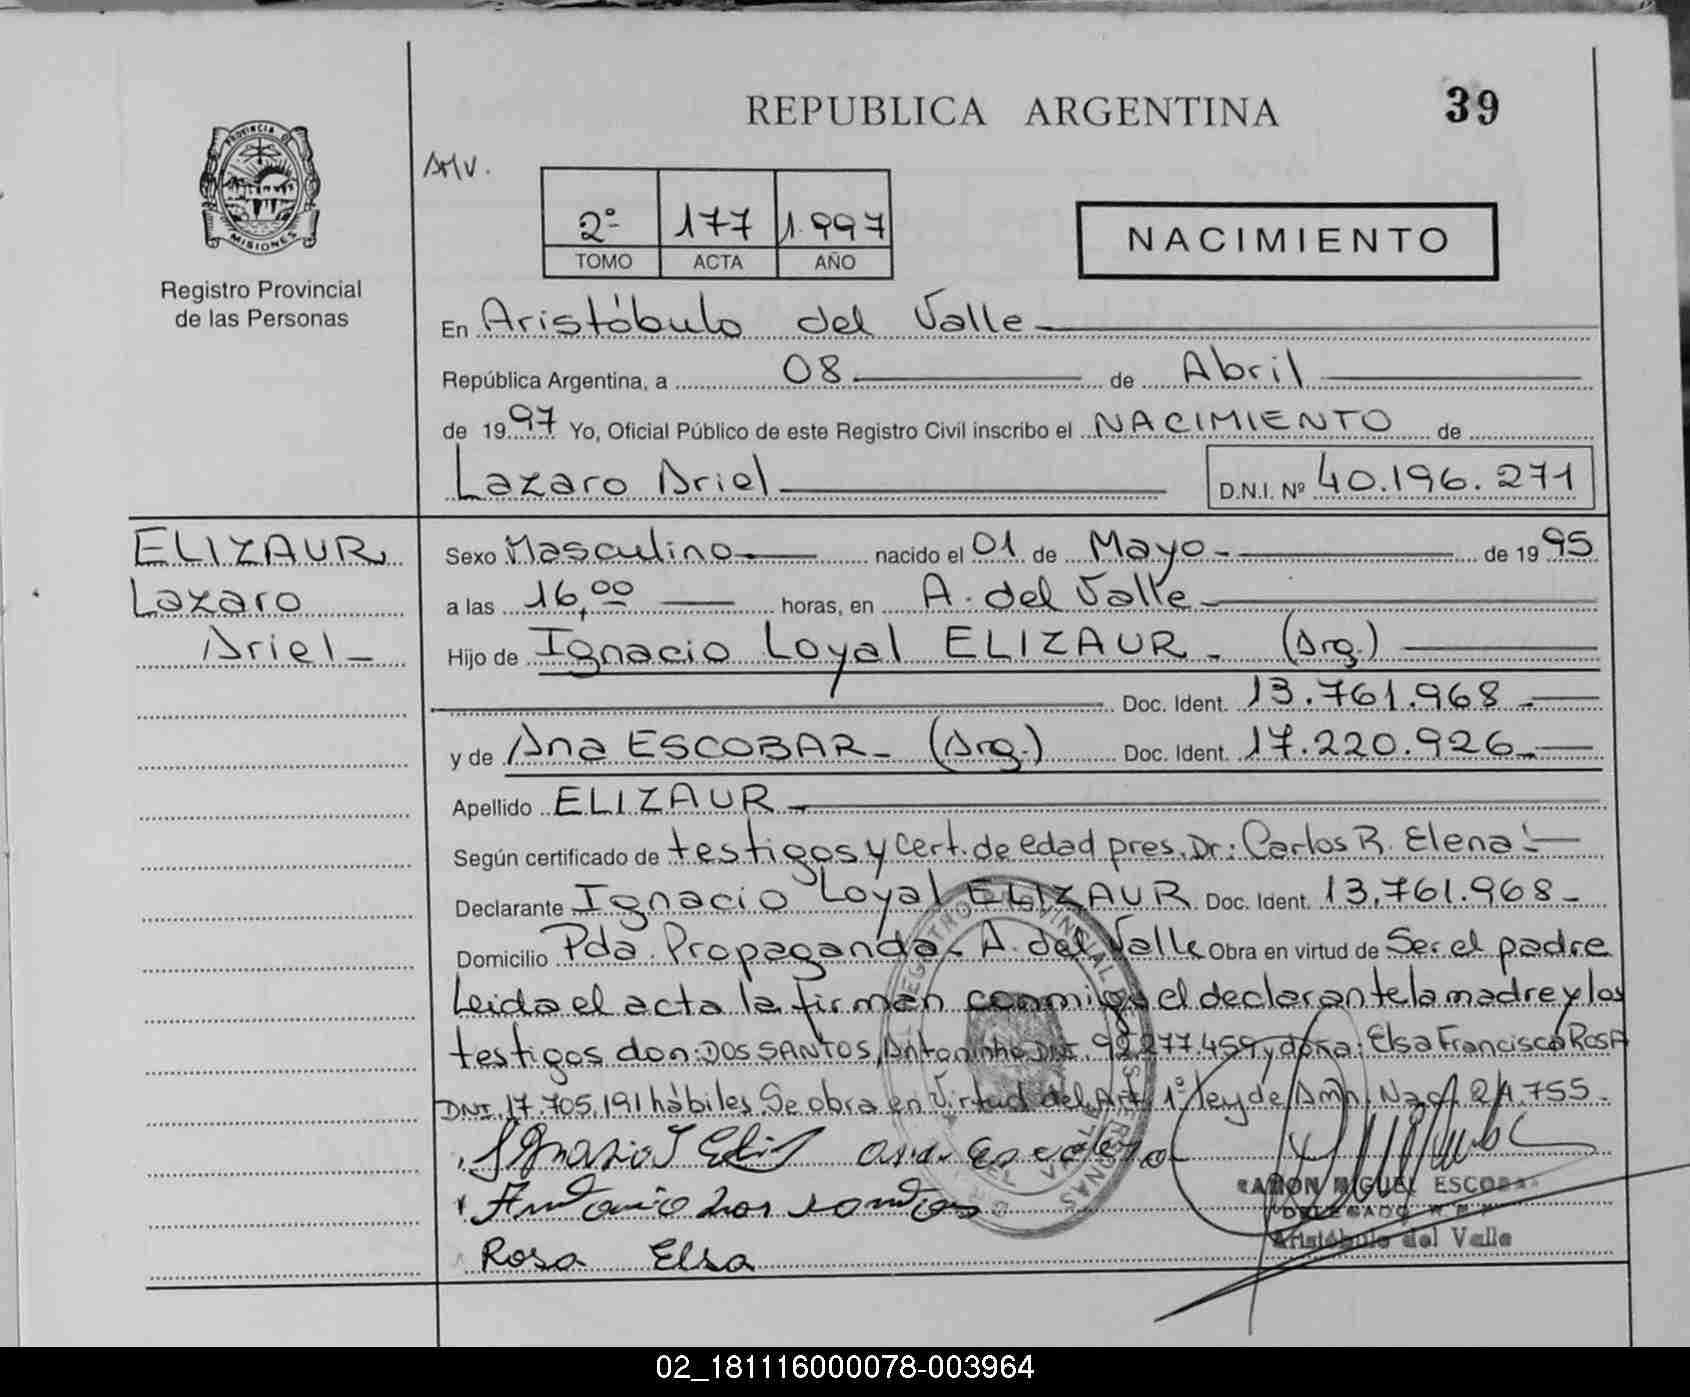 REPUBLICA ARGENTINA
39
PROVINCIA DE
MISIONES
Registro Provincial
de las Personas
AMV.
2º 177 1.997
TOMO ACTA AÑO
NACIMIENTO
En Aristóbulo del Valle
República Argentina, a 08 de Abril
de 1997 Yo, Oficial Público de este Registro Civil inscribo el NACIMIENTO de
Lazaro Ariel D.N.I. Nº 40.196.271
ELIZAUR
Lazaro
Ariel
Sexo Masculino nacido el 01 de Mayo de 1995
a las 16,00 horas, en A. del Valle
Hijo de Ignacio Loyal ELIZAUR (Arg.)
Doc. Ident. 13.761.968
y de Ana ESCOBAR (Arg.) Doc. Ident. 17.220.926
Apellido ELIZAUR
Según certificado de testigos y cert. de edad pres. Dr: Carlos R. Elena
Declarante Ignacio Loyal ELIZAUR Doc. Ident. 13.761.968
Domicilio Pda. Propaganda A. del Valle Obra en virtud de Ser el padre
Leida el acta la firman conmigo el declarante la madre y los
testigos don: DOS SANTOS, Antoninho DNI. 92.277.459 y doña: Elsa Francisca ROSA
DNI. 17.705.191 hábiles. Se obra en Virtud del Art. 1º ley de Amn. Nac. 24.755.
Rosa Elsa
RAMON MIGUEL ESCOBAR
DELEGADO
Aristóbulo del Valle
02_181116000078-003964